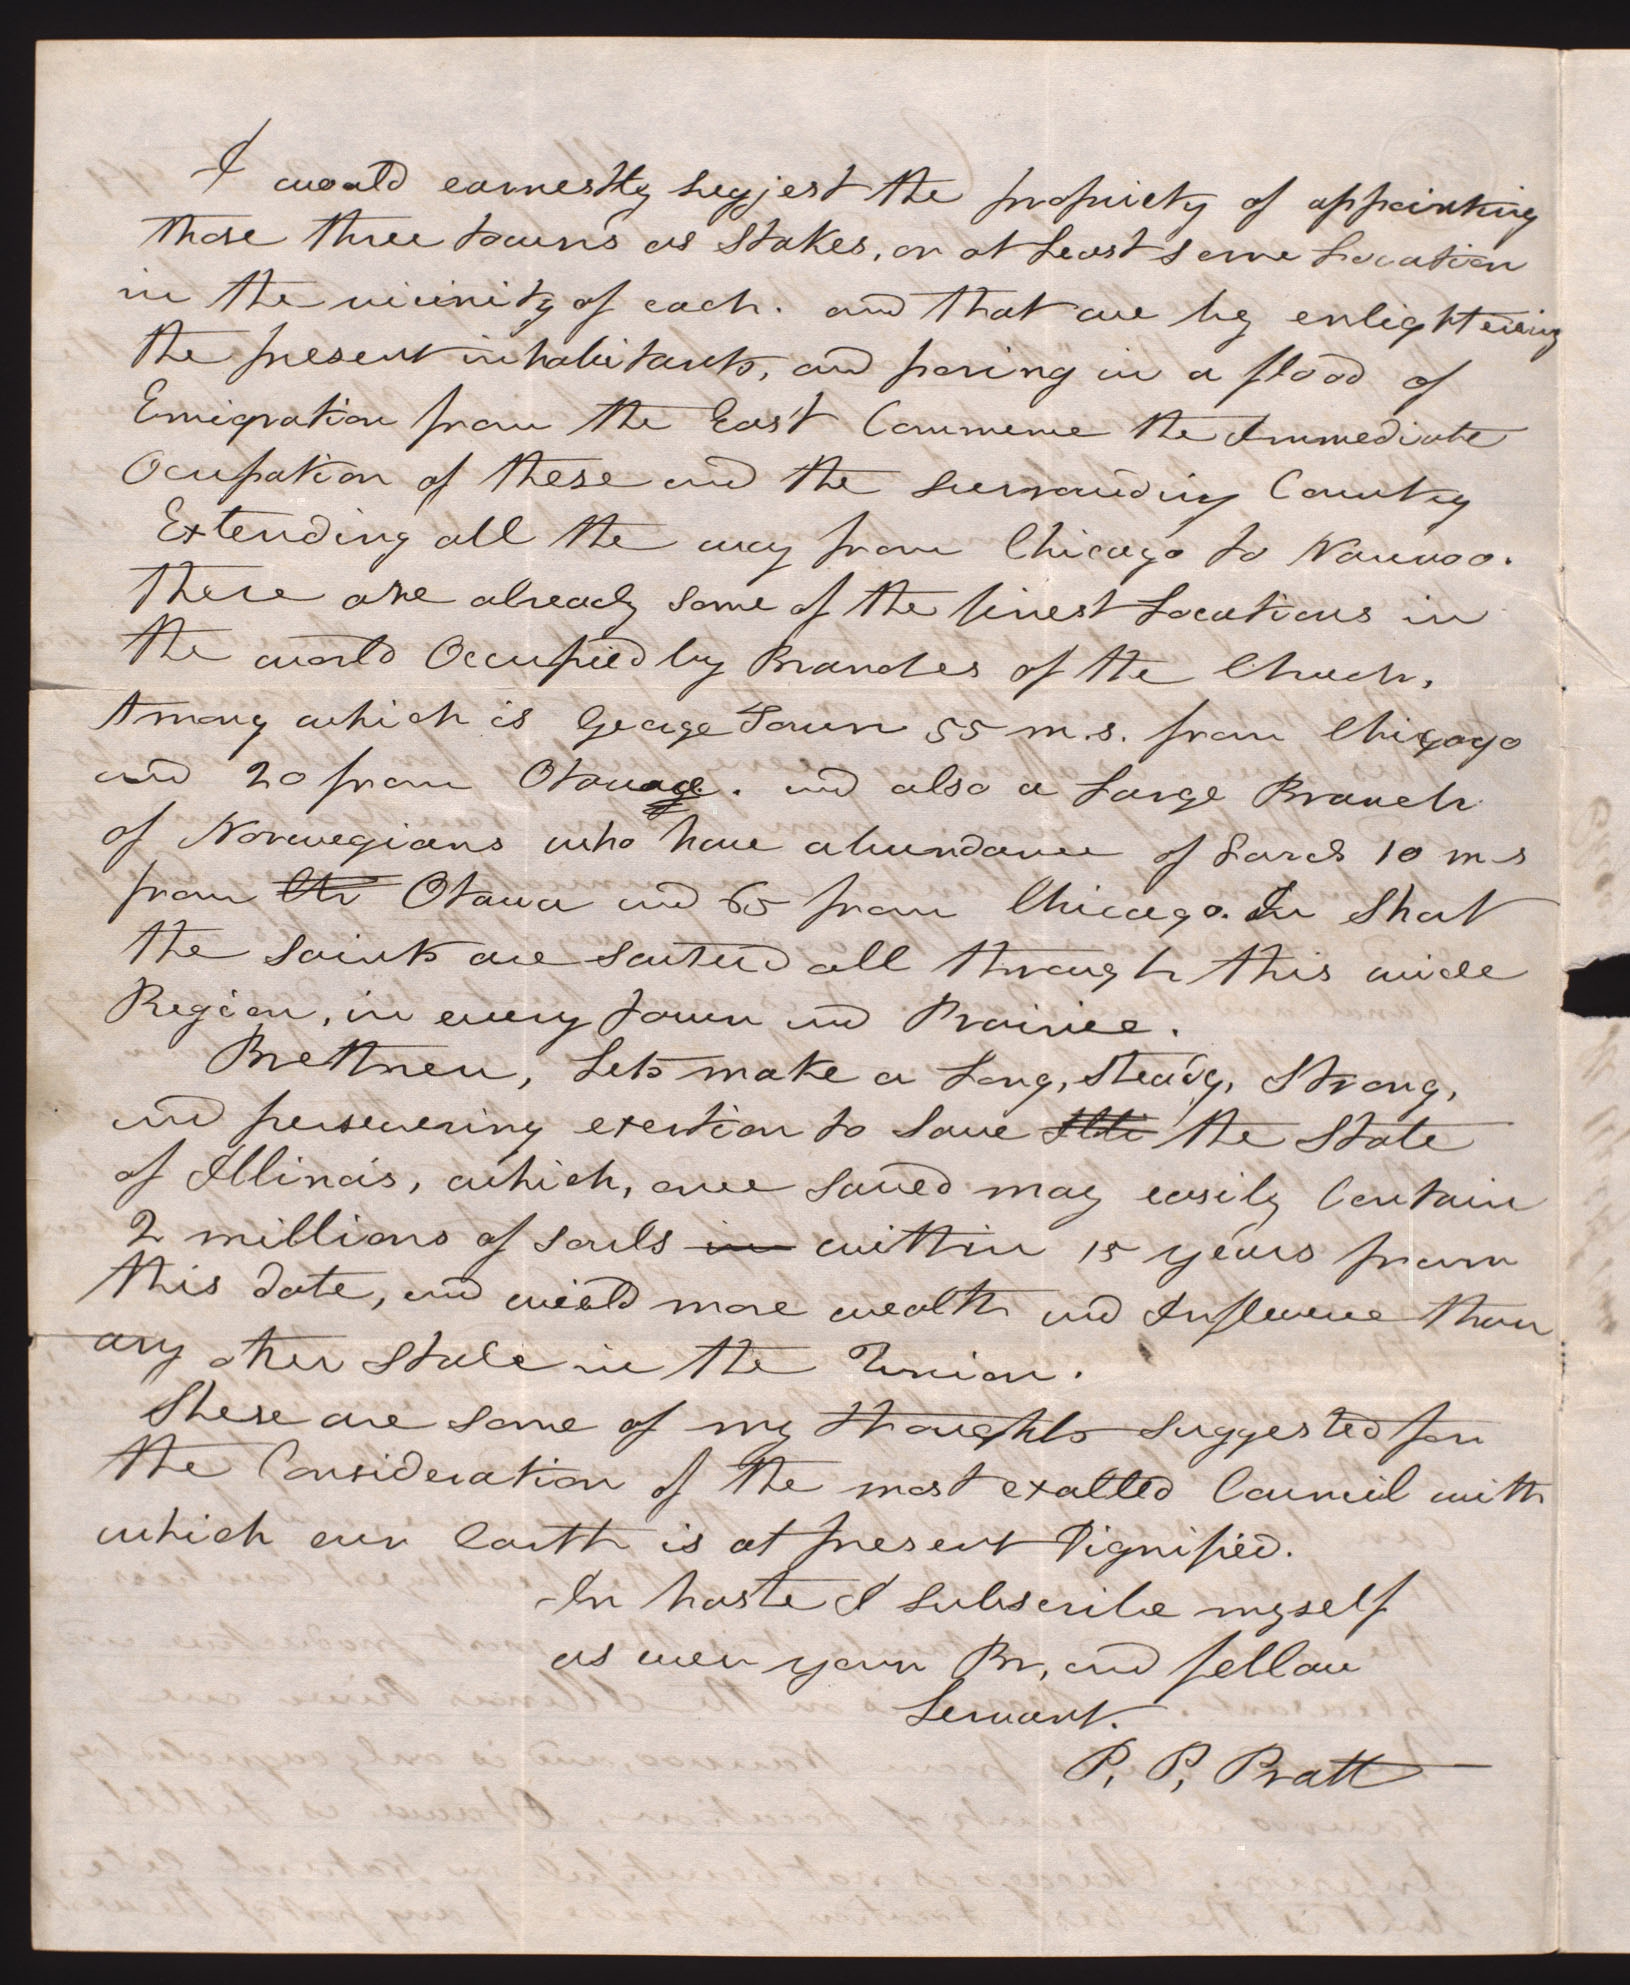 I would earnestly sugjest the propriety of appointing
those three towns as Stakes, or at Least some Location
in the vicinity of each. and that we by enlightening
the present inhabitants, and poring in a flood of
Emigration from the East Commence the Immediate
Ocupation of these and the surrounding Country
Extending all the way from Chicago to Nauvoo.
There are already some of the finest Locations in
the world Occupied by Branches of the Church,
Among which is George Town 55 m.s. from Chicago
and 20 from Otawa. and also a Large Branch
of Norwegians who have abundance of Land 10 m s
from Otawa and 65 from Chicago. In Short
the saints are scatterd all through this wide
Region, in every town and Prairiee.
Brethren, Lets make a Long, steady, Strong,
and persevering exertion to save the State
of Illinois, which, once saved may easily Contain
2 millions of souls in within 15 years from
this date, and wield more wealth and Influence than
any other State in the Union.
These are some of my thoughts suggested for
the Consideration of the most exalted Council with
which our Earth is at present Dignified.
In haste I subscribe myself
as ever your Br, and fellow
Servant.
P, P, Pratt